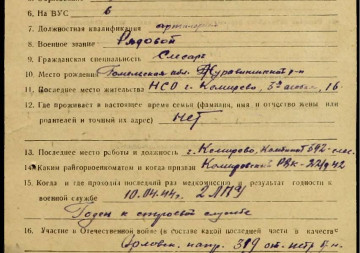 6. На ВУС 6
7. Должностная квалификация
8. Военное звание Рядовой
9. Гражданская специальность Слесарь
10. Место рождения Гомельская обл.
11. Последнее место жительства НСО г Кемерово, 16
12. Где проживает в настоящее время семья (фамилия, имя и отчество жены или
родителей и точный их адрес) нет
13. Последнее место работы и должность г. Кемерово, Комбинат 592-слес.
14. Каким райгорвоенкоматом и когда призван РВК-
15. Когда и где проходил последний раз медкомиссию результат годности к
военной службе 10.04.44г.
Годен к строевой службе
16. Участие в Отечественной войне (в составе какой последней части в качестве